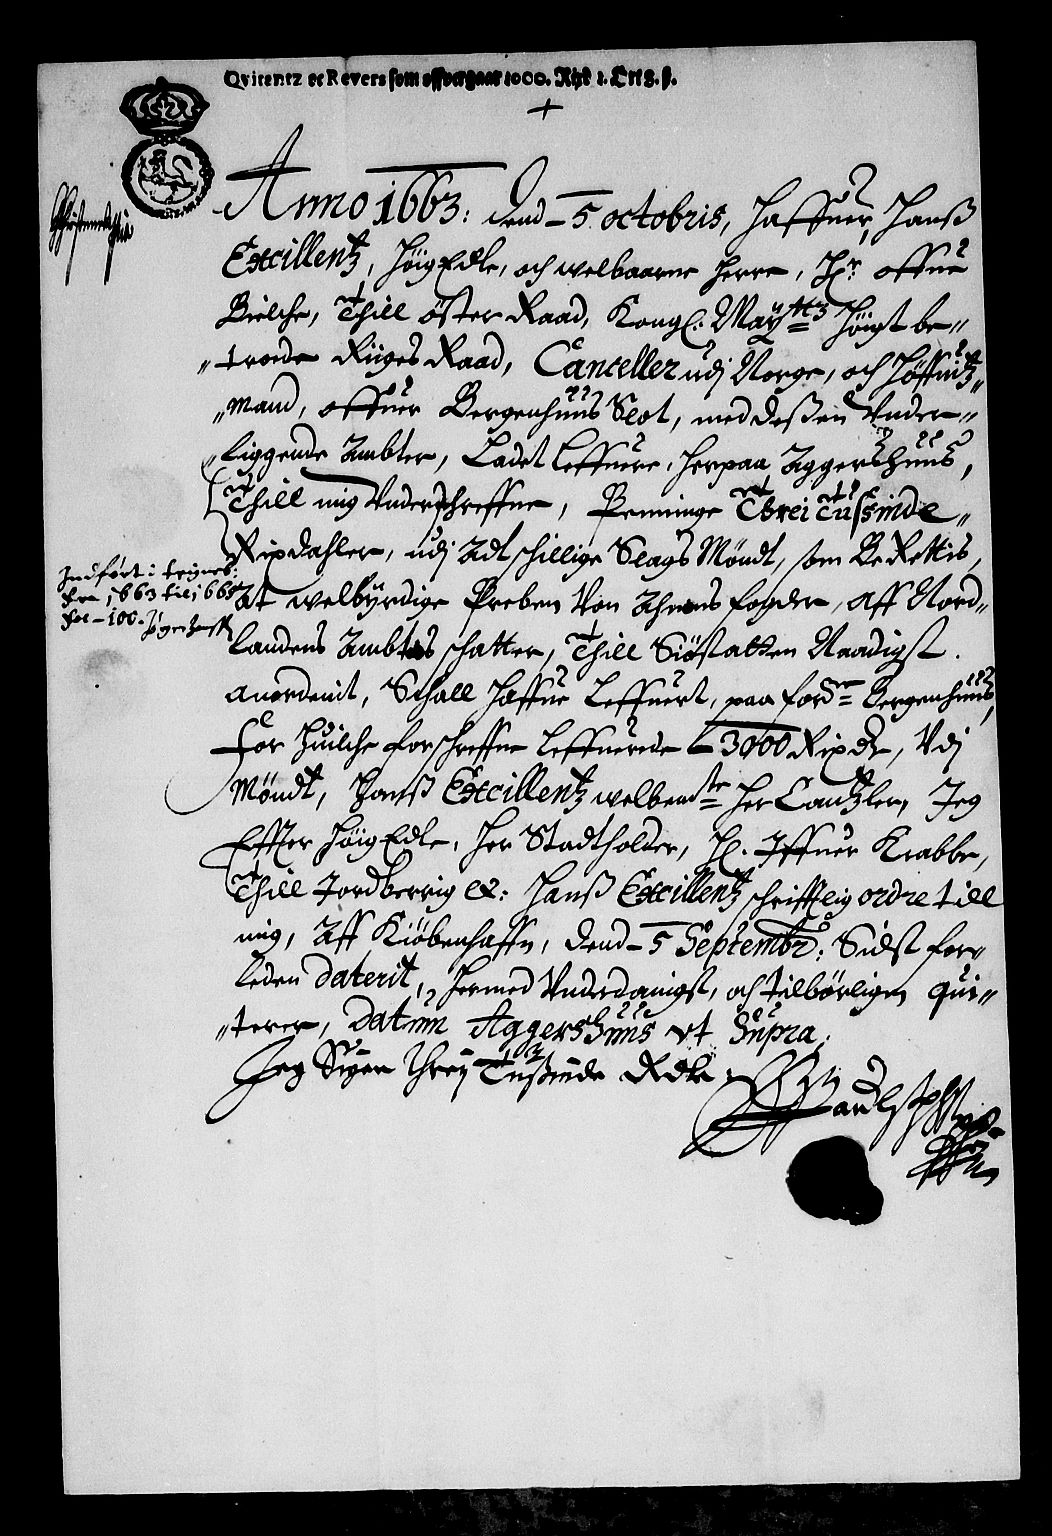 Qvitentz et Revers som offvergaar 1000. Rixd 1. Ort 8. ß.
Anno 1663: dend 5. octobris, haffuer, Hanß
Excillentz, HöigEdle, och welbaarne Herre, Hr: offue
Bielche, Thill öster Raad, Kongl: Maÿttz Höigt be-
-troede Riiges Raad, Cantzeller udj Norge, och Höffuitz-
-mand, offuer Bergenhuus Slot, med deßen Under-
-liggende Ambter, Ladet leffuere, herpaa Aggershuus,
Thill mig Underschreffne, Penninge Threi tußinde
Rixdahler, udj Adtschillige Slags Möndt, som BeRettis,
At welbÿrdige Preben Von Ahnens fogder, aff Nord-
landens Ambtes schatter, Thill Siöstatten Naadigst.
anordenit, Schall haffue Leffuert, paa forde Bergenhuus,
for huilche forschreffne leffuerede 3000 Rixdr, Udj
Möndt, Hanß Excillentz welbemte Her Cantzler, Jeg
Effter HöigEdle, Her Stadtholder, H. Iffuer Krabbe,
Thill Jordberrig etc: Hanß Excillentz schrifftlig ordre till
mig, Aff Kiöbenhaffn, dend 5 Septembr: Sidst for-
leden daterit, hermed Underdanigst, och tilbörligen qui-
-terer, Datum Aggershuus ut Supra.
Jeg Siger Threj Tußinde Rdlr
Indfört i Reignes:
fra 1663 til 1665
fol - 100.